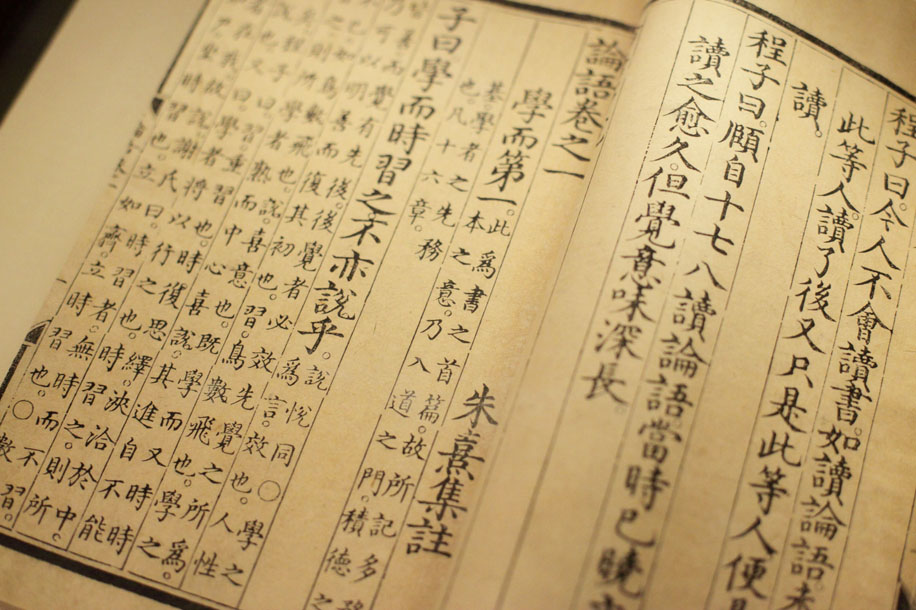 程子曰。今人不會讀書。如讀論語。
此等人。讀了後又只是此等人。便
讀。
程子曰。頤自十七八讀論語。當時已曉
讀之愈久。但覺意味深長。
論語卷之一
朱熹集註
學而第一。此為書之首篇。故所記多務
本之意。乃入道之門。積德之
基。學者之先務
也。凡十六章。
子曰學而時習之不亦說乎。說悅同○學之
為言效也。人性
皆善。而覺有先後。後覺者必效先覺之所為。
乃可以明善而復其初也。習。鳥數飛也。學之
已。如鳥數飛也。說。喜意也。既學而又時時
之。則所學者熟。而中心喜說。其進自不能
程子曰。習重習也。時復思繹。浹洽於中。
則說也。又曰。學者將以行之也。時習之。則所
學者在我。故說。謝氏曰。時習者。無時而不習。
時習也。立如齊。立時習也。○數